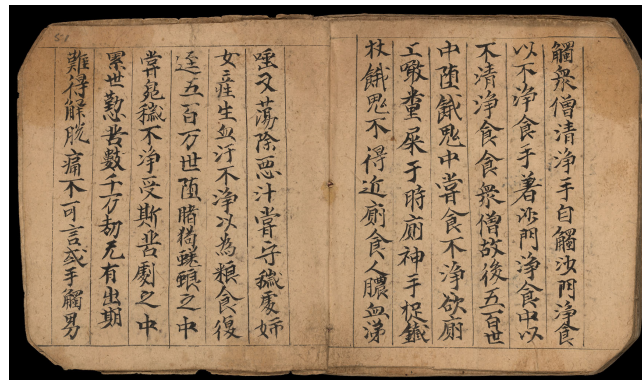 觸眾僧清淨手自觸沙門淨食
以不淨食手著沙門淨食中以
不清淨食食眾僧故後五百世
中墮餓鬼中常食不淨欲廁
上噉糞屎于時廁神手捉鐵
杖餓鬼不得近廁食人膿血涕
唾又蕩除惡汁常守穢處婦
女產生血汙不淨以為粮食復
逕五百万世墮猪蜣蜋之中
常宛穢不淨受斯苦劇之中
累世懃苦數千万劫无有出期
難得解脫痛不可言或手觸男